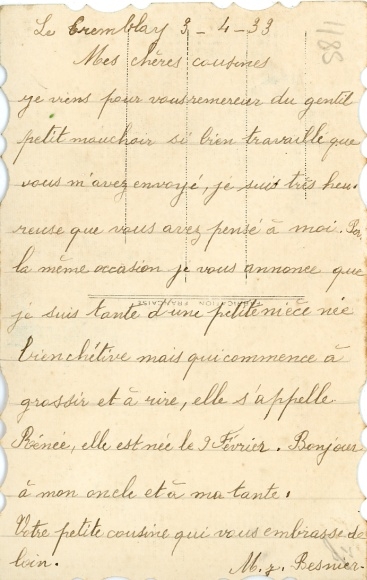 Le Tremblay 3 - 4 - 33
1185
Mes chères cousines
je viens pour vous remercier du gentil
petit mouchoir si bien travaillé que
vous m'avez envoyé, je suis très heu-
reuse que vous avez pensé à moi. Par
la même occasion je vous annonce que
FABRICATION FRANÇAISE
je suis tante d'une petite nièce née
bien chétive mais qui commence à
grossir et à rire, elle s'appelle
Rénée, elle est née le 9 Février. Bonjour
à mon oncle et à ma tante.
Votre petite cousine qui vous embrasse de
loin. M. z. Besnier.